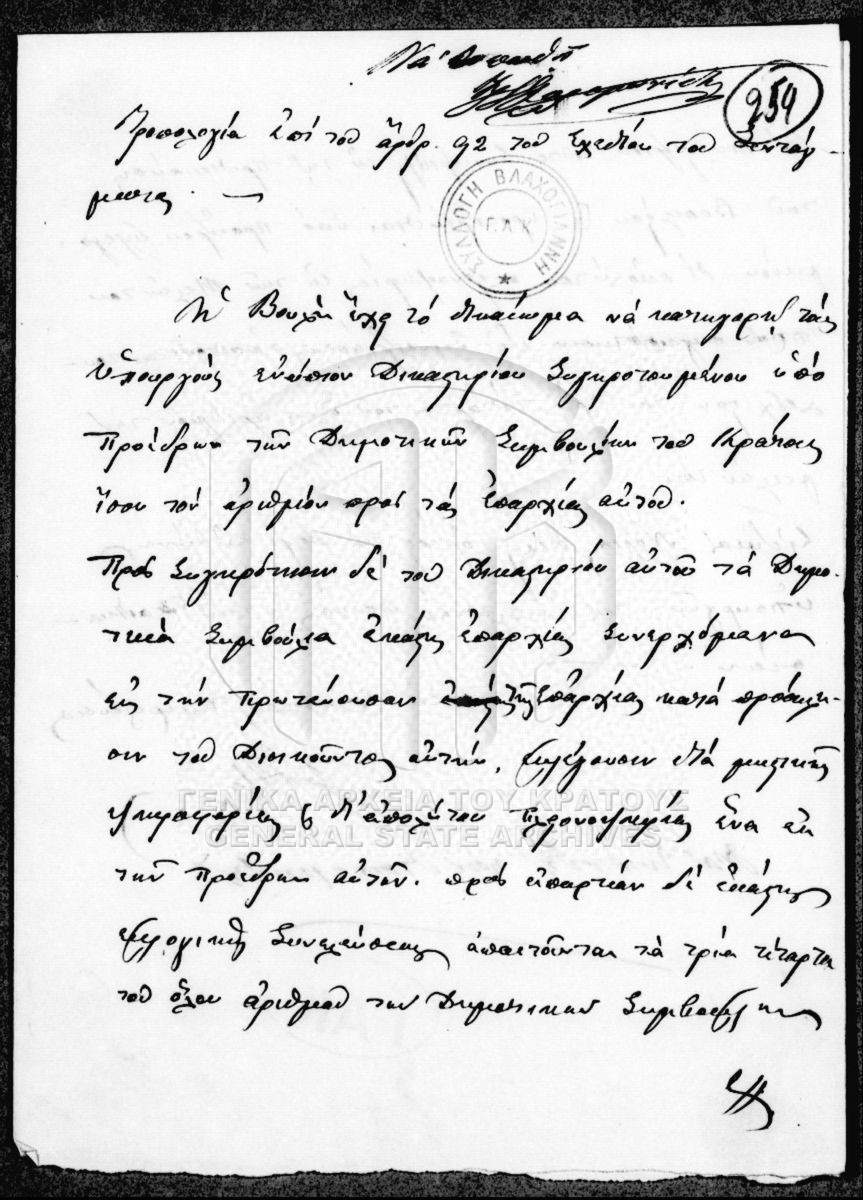 Νὰ τυπωθῇ
254
Τροπολογία ἐπὶ τοῦ ἄρθρ. 92 τοῦ Σχεδίου τοῦ Συντάγ-
ματος. —
ΣΥΛΛΟΓΗ ΒΛΑΧΟΓΙΑΝΝΗ
Γ.Α.Κ.
Ἡ Βουλὴ ἔχει τὸ δικαίωμα νὰ κατηγορῇ τοὺς
Ὑπουργοὺς ἐνώπιον Δικαστηρίου Συγκροτουμένου ὑπὸ
Προέδρων τῶν Δημοτικῶν Συμβουλίων τοῦ Κράτους
ἴσου τὸν ἀριθμὸν πρὸς τὰς Ἐπαρχίας αὐτοῦ.
Πρὸς Συγκρότησιν δὲ τοῦ Δικαστηρίου αὐτοῦ τὰ Δημο-
τικὰ Συμβούλια ἑκάστης ἐπαρχίας Συνερχόμενα
εἰς τὴν Πρωτεύουσαν τῆς Ἐπαρχίας κατὰ πρόσκλη-
σιν τοῦ Διοικοῦντος αὐτὴν, ἐκλέγουσιν διὰ μυστικῆς
ψηφοφορίας καὶ δι' ἀπολύτου πλειονοψηφίας ἕνα ἐκ
τῶν Προέδρων αὐτῶν. πρὸς ἀπαρτίαν δὲ ἑκάστης
ἐκλογικῆς Συνελεύσεως ἀπαιτοῦνται τὰ τρία τέταρτα
τοῦ ὅλου ἀριθμοῦ τῶν Δημοτικῶν Συμβούλων
ΓΕΝΙΚΑ ΑΡΧΕΙΑ ΤΟΥ ΚΡΑΤΟΥΣ
GENERAL STATE ARCHIVES